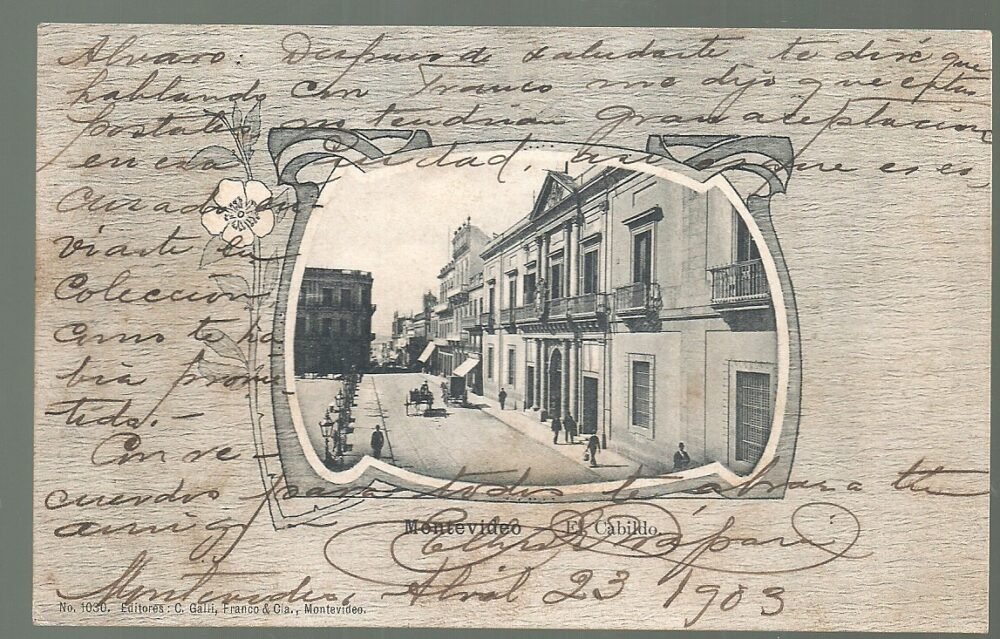 Alvaro: Despues de saludarte te diré que
hablando con Franco me dijo que estas
postales no tendrian gran aceptacion
en esa ciudad, asi es que es es-
cusado en-
viarte la
Coleccion
como te ha
bia prome
tido.-
Con re-
cuerdos para todos te abraza tu
amigo
Montevideo El Cabildo.
Montevideo, Abril 23 1903
No. 1030. Editores: C. Galli, Franco & Cia., Montevideo.